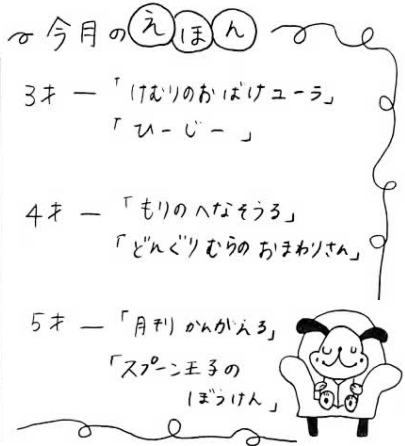 今月のえほん
3才 ー 「けむりのおばけユーラ」
「ひーじー」
4才 ー 「もりのへなそうる」
「どんぐりむらのおまわりさん」
5才 ー 「月刊かんがえる」
「スプーン王子の
ぼうけん」